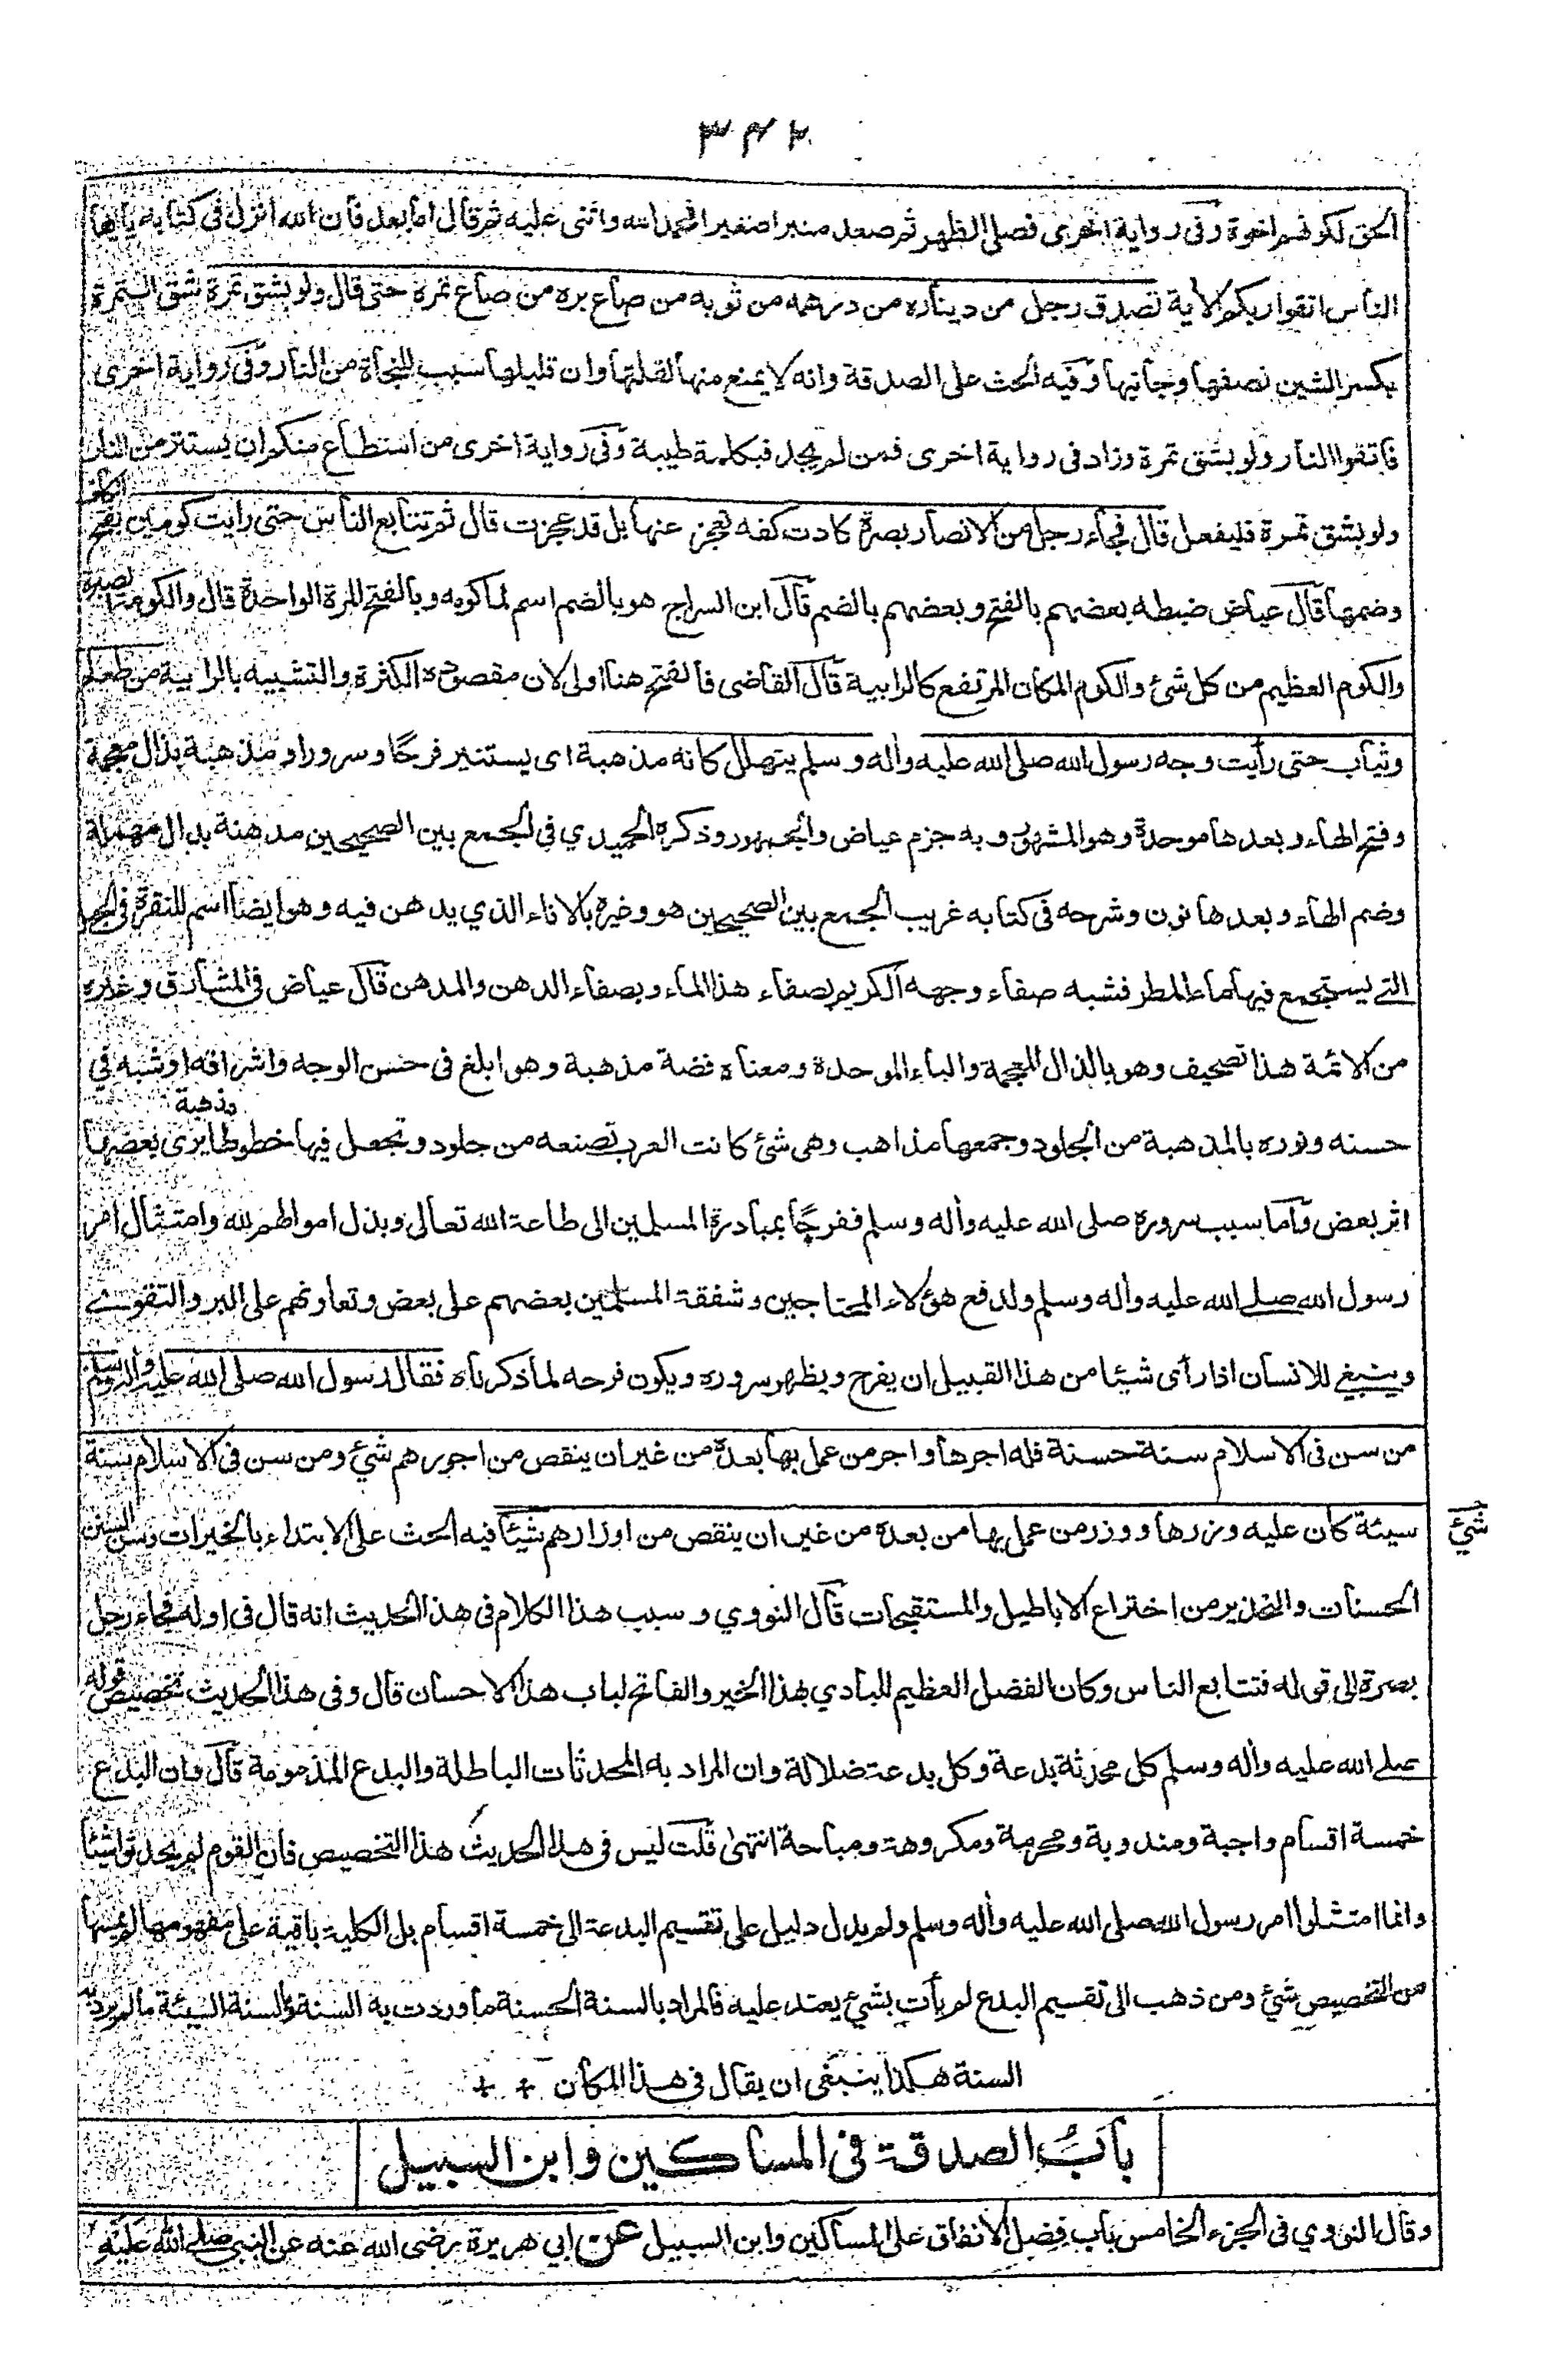 ٣٤٢
الحق لكونهم اخوة وفى رواية اخرى فصلى الظهر ثم صعد منبرا صغيرا فحمد الله واثنى عليه ثم قال اما بعد فان الله انزل فى كتابه يايها
الناس اتقوا ربكم الأية تصدق رجل من ديناره من درهمه من ثوبه من صاع بره من صاع تمره حتى قال ولو بشق تمرة شق التمرة
بكسر الشين نصفها وجانبها وفيه الحث على الصدقة وانه لا يمتنع منها لقلتها وان قليلها سبب للنجاة من النار وفى رواية اخرى
فاتقوا النار ولو بشق تمرة وزاد فى رواية اخرى فمن لم يجد فبكلمة طيبة وفى رواية اخرى من استطاع منكم ان يستتر من النار
ولو بشق تمرة فليفعل قال فجاء رجل من الانصار بصرة كادت كفه تعجز عنها بل قد عجزت قال ثم تتابع الناس حتى رايت كومين بفتح الكاف
وضمها قال عياض ضبطه بعضهم بالفتح وبعضهم بالضم قال ابن السراج هو بالضم اسم لما كومه وبالفتح للمرة الواحدة قال والكومة الصبرة
والكوم العظيم من كل شئ والكوم المكان المرتفع كالرابية قال القاضى فالفتح هنا اولى لان مقصوده الكثرة والتشبيه بالرابية من طعام
وثياب حتى رأيت وجه رسول الله صلى الله عليه وأله وسلم يتهلل كانه مذهبة اى يستنير فرحًا وسرورا ومذهبة بذال معجمة
وفتح الهاء وبعدها موحدة وهو المشهور وبه جزم عياض والجمهور وذكره الحميدي فى الجمع بين الصحيحين مدهنة بدال مهملة
وضم الهاء وبعدها نون وشرحه فى كتابه غريب الجمع بين الصحيحين هو وغيره بالاناء الذي يدهن فيه وهو ايضا اسم للنقرة فى الجبل
التى يستجمع فيها ماء المطر فشبه صفاء وجهه الكريم بصفاء هذا الماء وبصفاء الدهن والمدهن قال عياض فى المشارق وغيره
من الائمة هذا تصحيف وهو بالذال المعجمة والباء الموحدة ومعناه فضة مذهبة وهو ابلغ فى حسن الوجه واشراقه او شبه في
حسنه ونوره بالمذهبة من الجلود وجمعها مذاهب وهى شئ كانت العرب تصنعه من جلود وتجعل فيها خطوطا مذهبة يرى بعضها
اثر بعض واما سبب سروره صلى الله عليه وأله وسلم ففرحًا بمبادرة المسلمين الى طاعة الله تعالى وبذل اموالهم لله وامتثال امر
رسول الله صلى الله عليه وأله وسلم ولدفع هؤلاء المحتاجين وشفقة المسلمين بعضهم على بعض وتعاونهم على البر والتقوى
وينبغي للانسان اذا رأى شيئا من هذا القبيل ان يفرح ويظهر سروره ويكون فرحه لما ذكرناه فقال رسول الله صلى الله عليه وأله وسلم
من سن فى الاسلام سنة حسنة فله اجرها واجر من عمل بها بعده من غير ان ينقص من اجورهم شئ ومن سن فى الاسلام سنة
سيئة كان عليه وزرها ووزر من عمل بها من بعده من غير ان ينقص من اوزارهم شيئا فيه الحث على الابتداء بالخيرات وسن السنن
شئ
الحسنات والتحذير من اختراع الاباطيل والمستقبحات قال النووي وسبب هذا الكلام فى هذا الحديث انه قال فى اوله فجاء رجل
بصرة الى قوله فتتابع الناس وكان الفضل العظيم للبادي بهذا الخير والفاتح لباب هذا الاحسان قال وفى هذا الحديث تخصيص قوله
صلى الله عليه وأله وسلم كل محدثة بدعة وكل بدعة ضلالة وان المراد به المحدثات الباطلة والبدع المذمومة قال وان البدع
خمسة اقسام واجبة ومندوبة ومحرمة ومكروهة ومباحة انتهى قلت ليس فى هذا الحديث هذا التخصيص فان القوم لم يحدثوا شيئا
وانما امتثلوا امر رسول الله صلى الله عليه وأله وسلم ولم يدل دليل على تقسيم البدعة الى خمسة اقسام بل الكلية باقية على مفهومها لم يمسها
من التخصيص شئ ومن ذهب الى تقسيم البدع لم يأت بشئ يعتد عليه فالمراد بالسنة الحسنة ما وردت به السنة والسنة السيئة ما لم يرد به
السنة هكذا ينبغى ان يقال فى هذا المكان
باب الصدقة فى المساكين وابن السبيل
وقال النووي فى الجزء الخامس باب فضل الانفاق على المساكين وابن السبيل عن ابي هريرة رضى الله عنه عن النبي صلى الله عليه